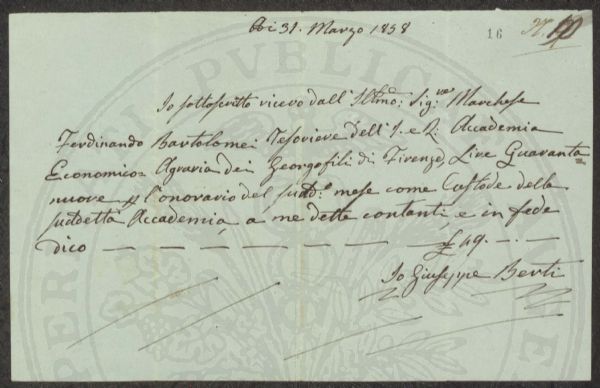 Adi 31. Marzo 1858
16
Io sottoscritto ricevo dall'Illmo: Sig:re Marchese
Ferdinando Bartolomei Tesoriere dell'I. e R: Accademia
Economico-Agraria dei Georgofili di Firenze, Lire Quaranta=
nuove p l'onorario del sudd:o mese come Custode della
suddetta Accademia a me dette contanti e in fede
dico — — — — — — — — £ 49. — . —
Io Giuseppe Berti